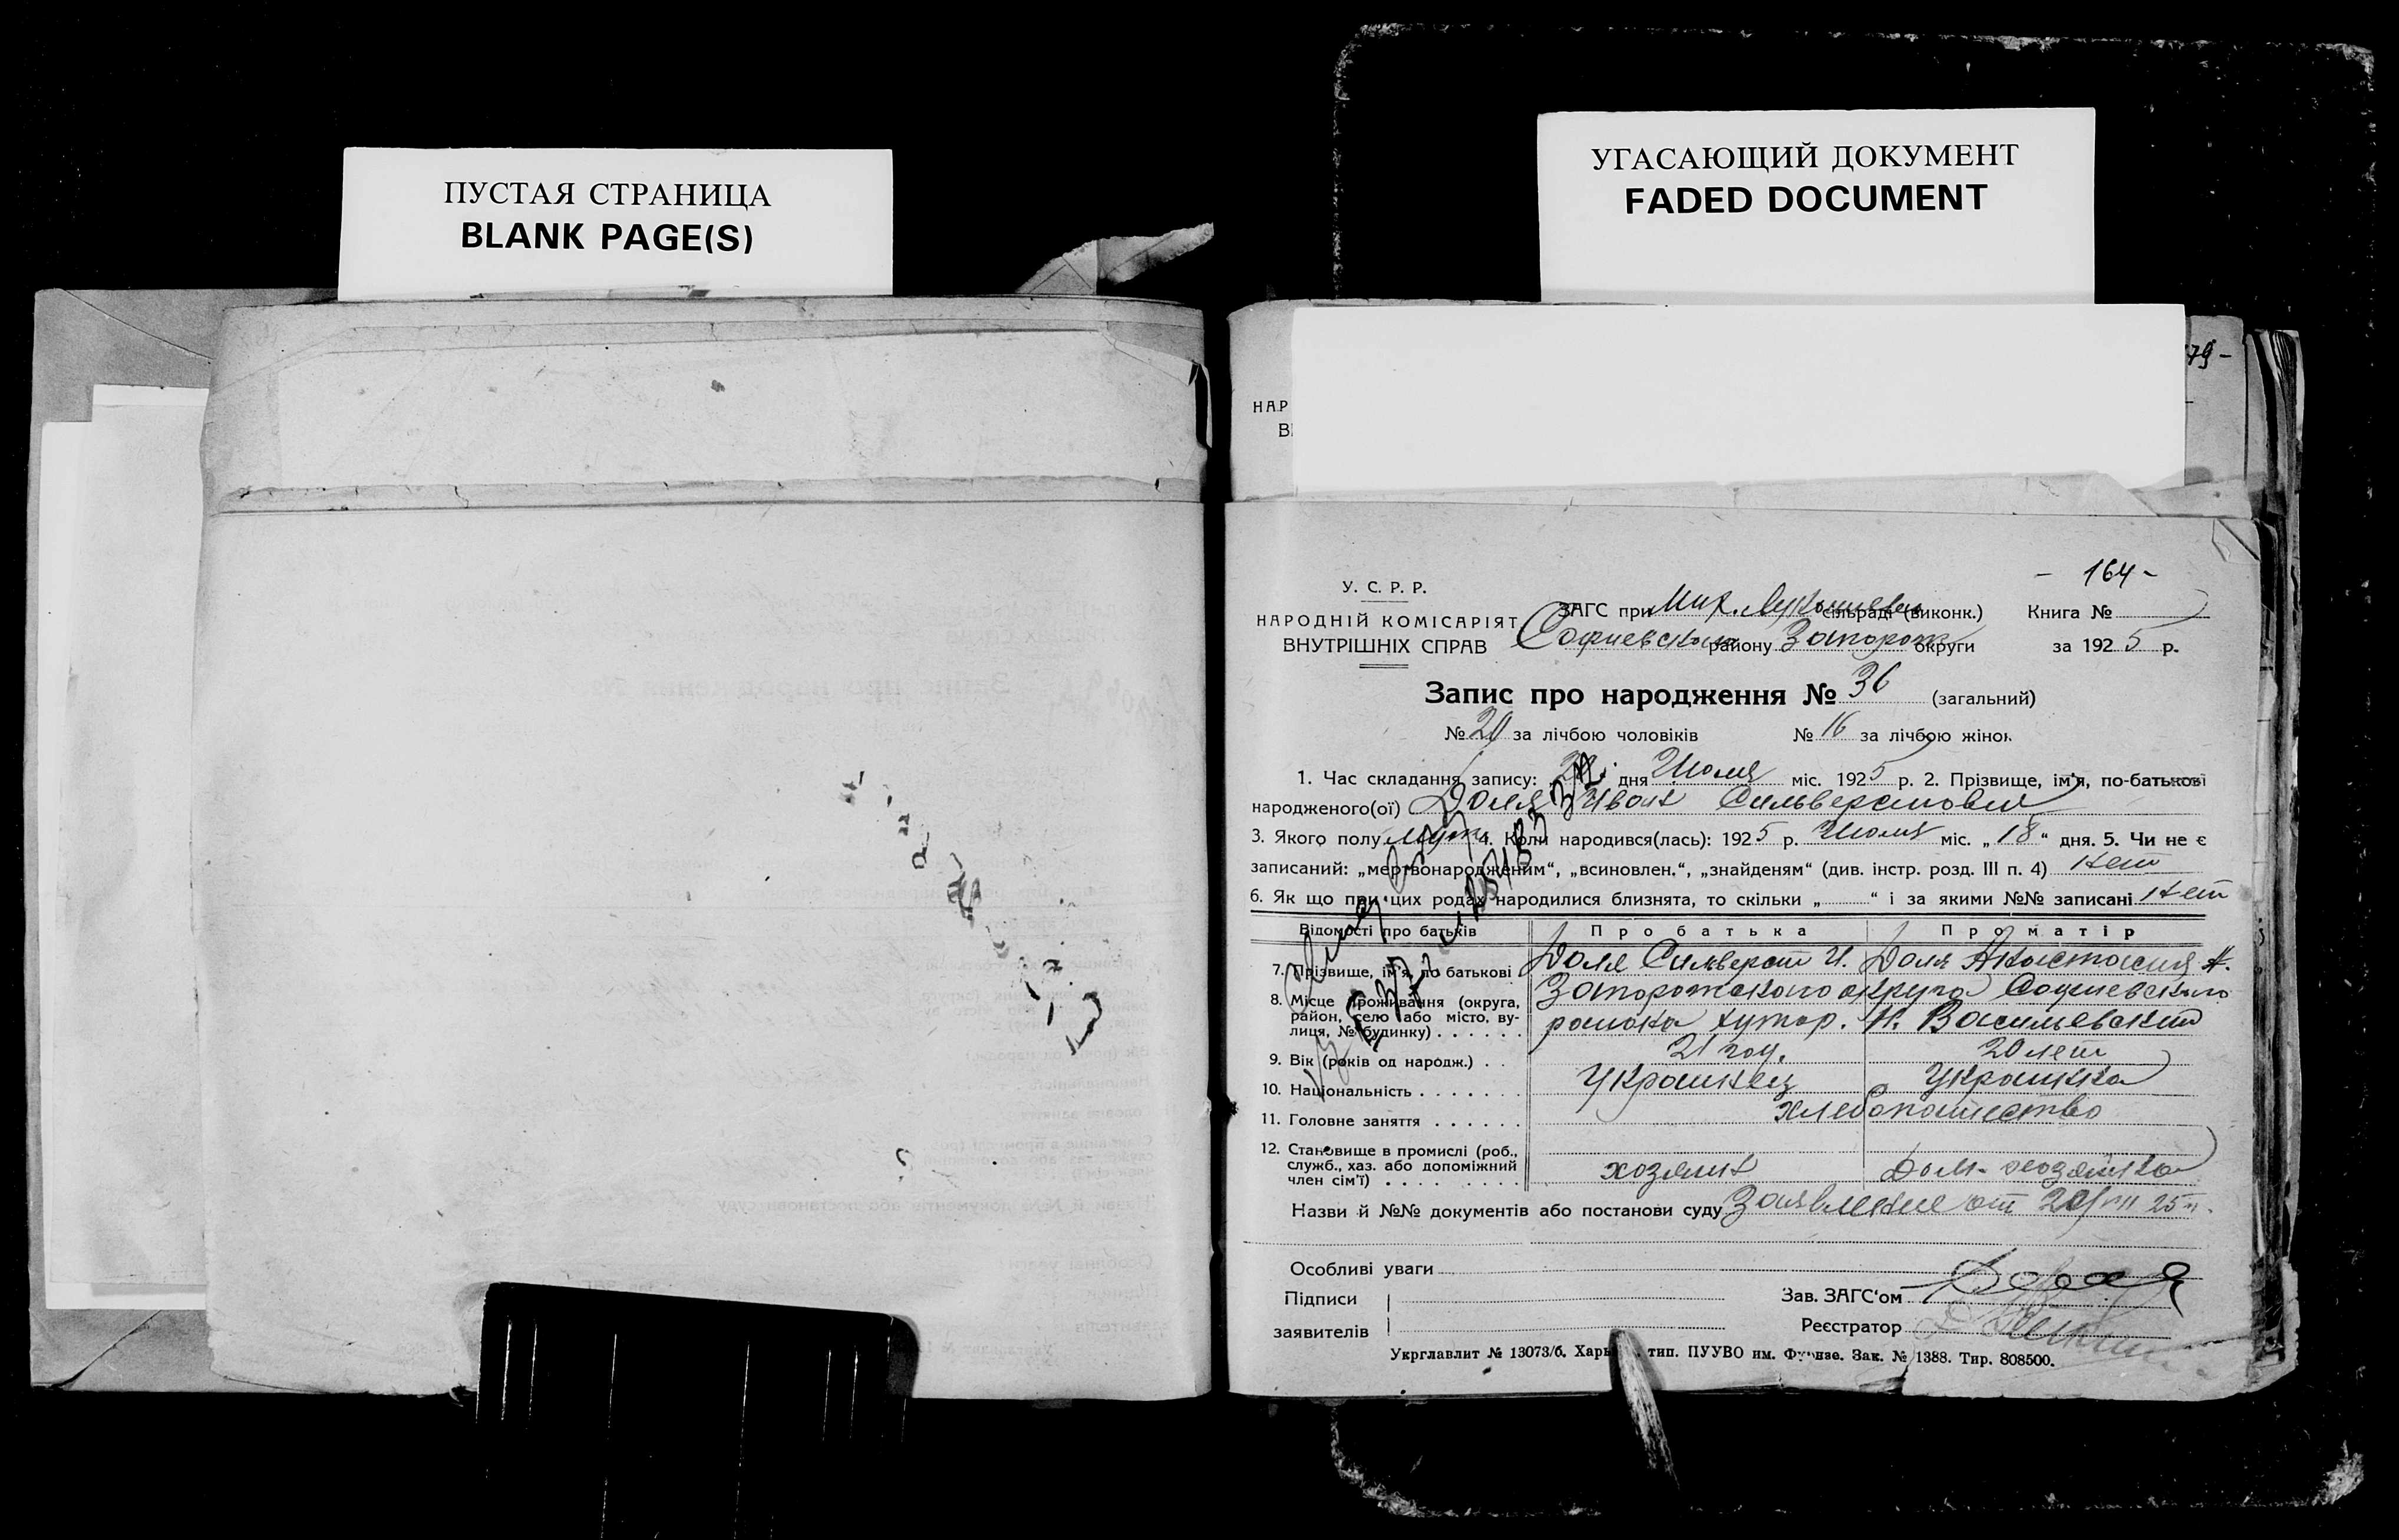 ПУСТАЯ СТРАНИЦА
BLANK PAGE(S)
УГАСАЮЩИЙ ДОКУМЕНТ
FADED DOCUMENT
79 -
НАР
В
- 164 -
У. С. Р. Р.
НАРОДНІЙ КОМІСАРІЯТ
ВНУТРІШНІХ СПРАВ
ЗАГС при сільраді (виконк.) Книга №
Софиевского району Запорож округи за 1925 р.
Запис про народження № 36 (загальний)
№ 20 за лічбою чоловіків № 16 за лічбою жінок
1. Час складання запису: дня Июля міс. 1925 р. 2. Прізвище, ім'я, по-батькові
народженого(ої) Доля Иван Сильверстович
3. Якого полу муж. 4. Коли народився(лась): 1925 р. Июля міс. „18“ дня. 5. Чи не є
записаний: „мертвонародженим“, „всиновлен.“, „знайденям“ (див. інстр. розд. III п. 4) нет
6. Як що при цих родах народилися близнята, то скільки „ “ і за якими №№ записані нет
Відомості про батьків Про батька Про матір
7. Прізвище, ім'я, по батькові Доля Сильверст И. Доля Анастасия А.
8. Місце проживання (округа, район, село або місто, вулиця, № будинку) Запорожского округа Софиевского
района хутор. Н. Васильевский
9. Вік (років од народж.) 21 год. 20 лет
10. Національність Украинец Украинка
11. Головне заняття хлебопашество
12. Становище в промислі (роб.,
служб., хаз. або допоміжний
член сім'ї) хозяин Дом. хозяйка
Назви й №№ документів або постанови суду Заявление от 20/VII 25 г.
Особливі уваги
Підписи
заявителів
Зав. ЗАГС'ом
Реєстратор
Укрглавлит № 13073/б. Харь тип. ПУУВО им. Фрунзе. Зак. № 1388. Тир. 808500.